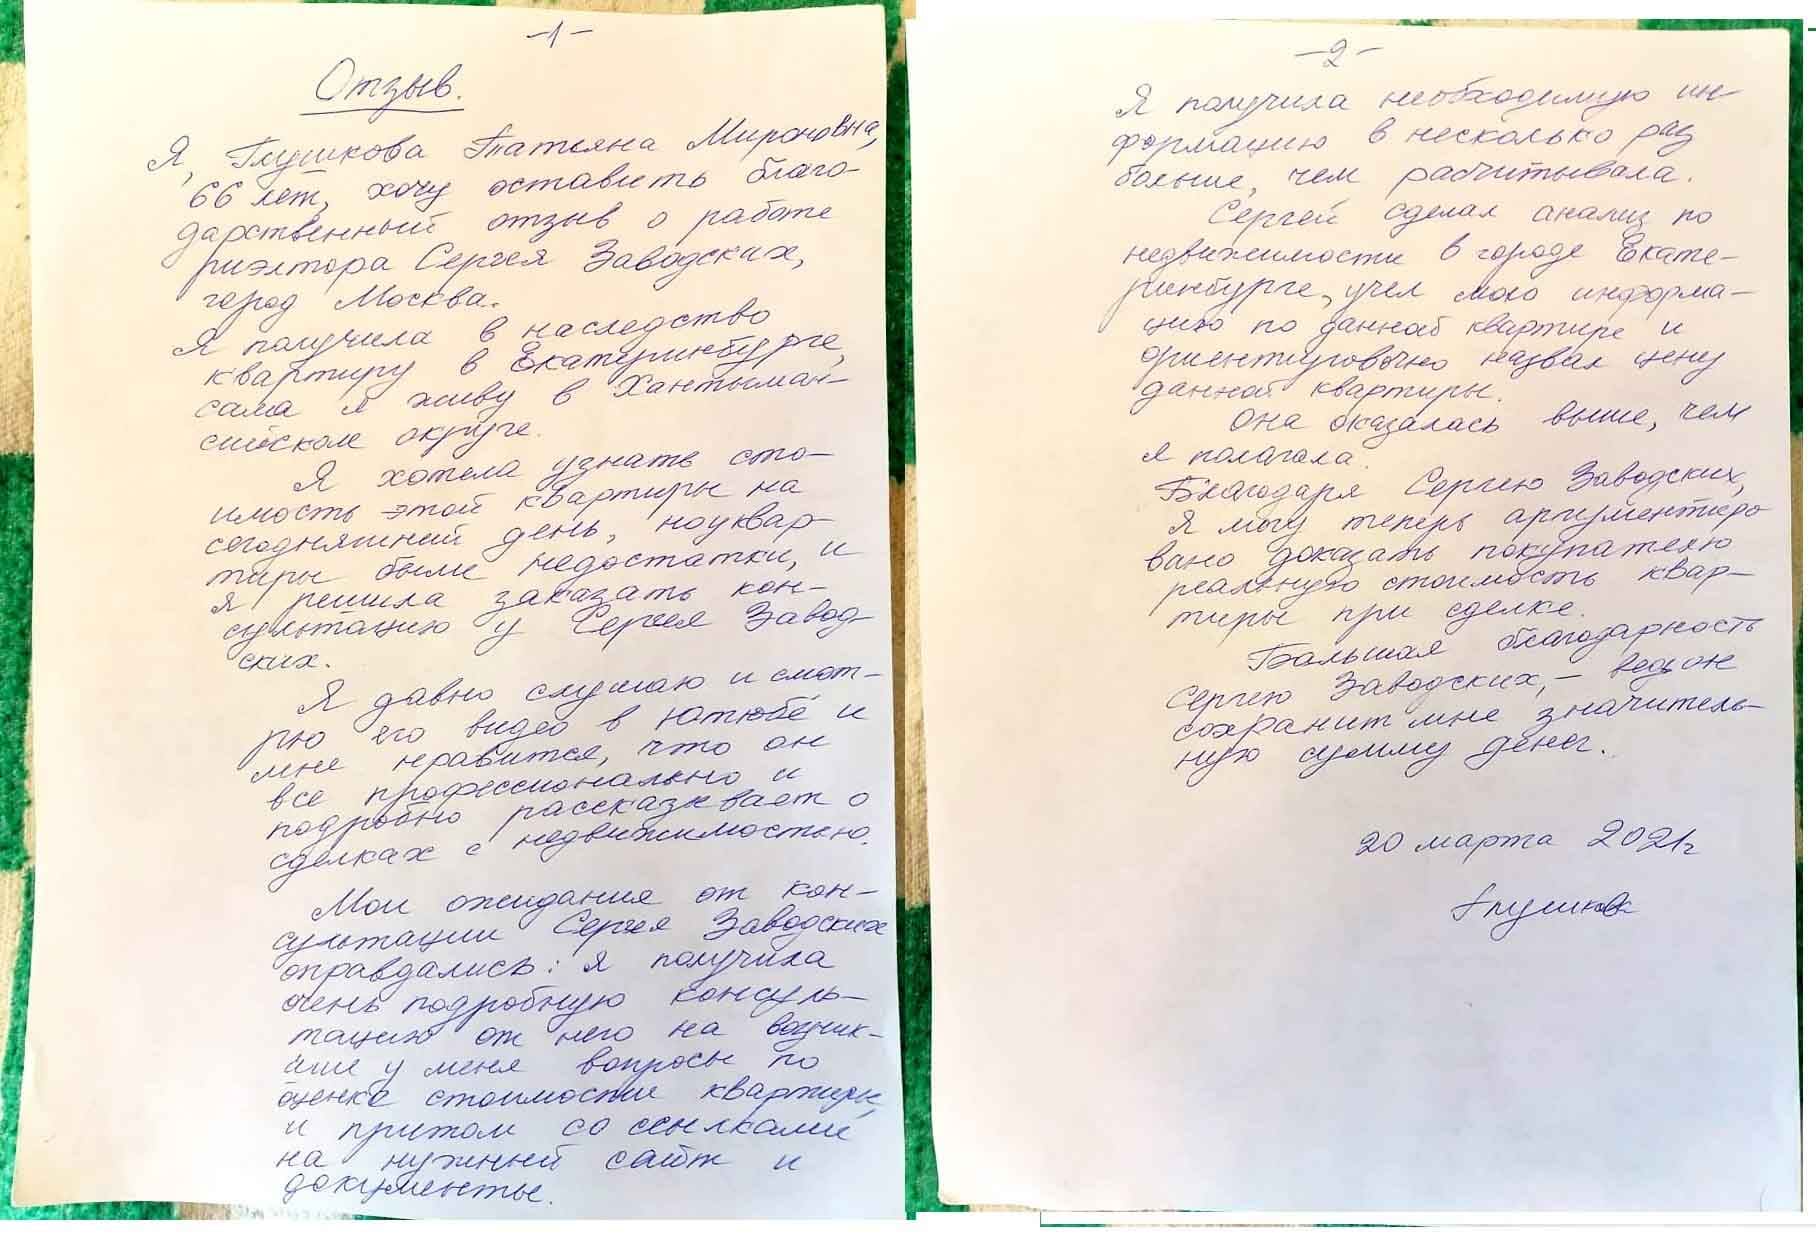 -1-
Отзыв.
Я, Глушкова Татьяна Мироновна,
66 лет, хочу оставить благо-
дарственный отзыв о работе
риэлтора Сергея Заводских,
город Москва.
Я получила в наследство
квартиру в Екатеринбурге,
сама я живу в Хантыман-
сийском округе.
Я хотела узнать сто-
имость этой квартиры на
сегодняшний день, но у квар-
тиры были недостатки, и
я решила заказать кон-
сультацию у Сергея Завод-
ских.
Я давно слушаю и смот-
рю его видео в ютюбе и
мне нравится, что он
все профессионально и
подробно рассказывает о
сделках с недвижимостью.
Мои ожидания от кон-
сультации Сергея Заводских
оправдались: я получила
очень подробную консуль-
тацию от него на возник-
шие у меня вопросы по
оценке стоимости квартиры,
и притом со ссылками
на нужный сайт и
документы.
-2-
Я получила необходимую ин-
формацию в несколько раз
больше, чем расчитывала.
Сергей сделал анализ по
недвижимости в городе Екате-
ринбурге, учел мою информа-
цию по данной квартире и
ориентировочно назвал цену
данной квартиры.
Она оказалась выше, чем
я полагала.
Благодаря Сергею Заводских,
я могу теперь аргументиро
вано доказать покупателю
реальную стоимость квар-
тиры при сделке.
Большая благодарность
Сергею Заводских, - ведь он
сохранит мне значитель-
ную сумму денег.
20 марта 2021г
Глушков